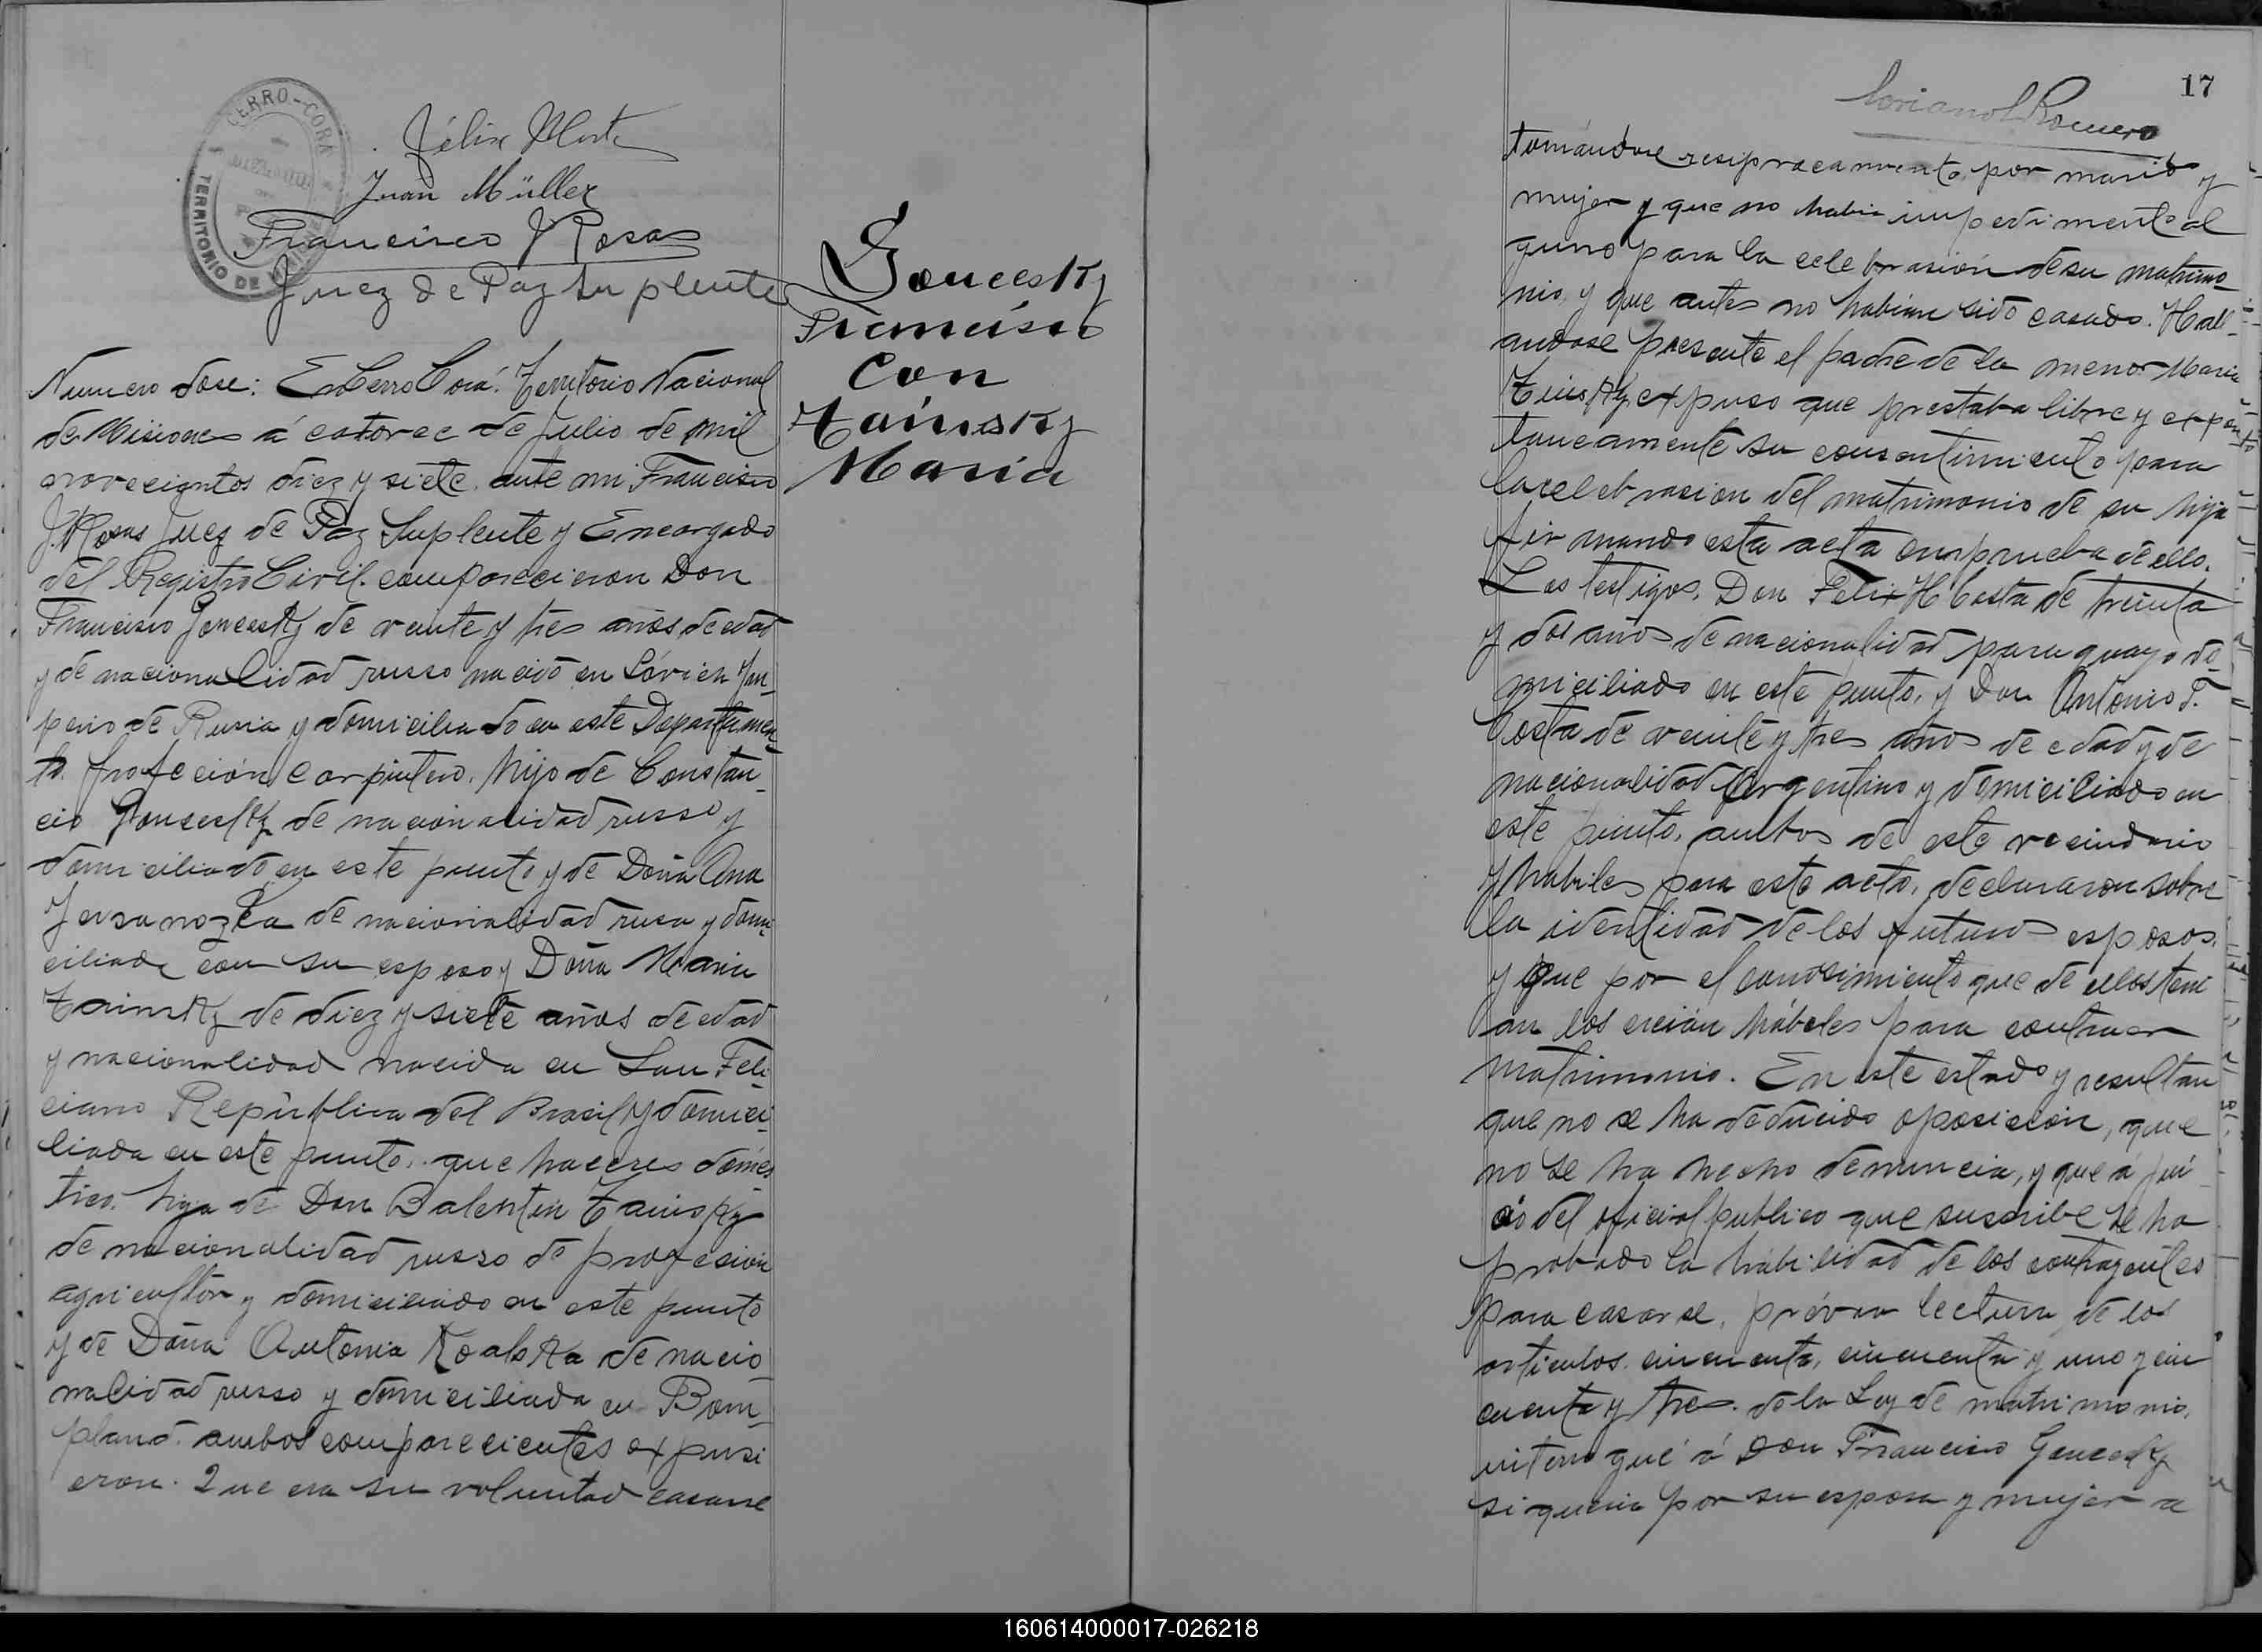 CERRO-CORÁ
TERRITORIO DE
Félix
Juan Müller
Francisco J Rosas
Juez de Paz Suplente
Goncesky
Francisco
Con
Zainsky
María
Numero dose: En Cerro Corá. Territorio Nacional
de Misiones á catorce de Julio de mil
novecientos diez y siete, ante mi Francisco
J. Rosas Juez de Paz Suplente y Encargado
del Registro Civil. comparecieron Don
Francisco Goncesky de veinte y tres años de edad
y de nacionalidad russo nacido en Im_
perio de Rusia y domiciliado en este Departamen_
to. profeción carpintero, hijo de Constan_
cio Gonsesky de nacionalidad russo y
domiciliado en este punto y de Doña Ana
de nacionalidad rusa y domi_
ciliada con su esposo y Doña Maria
Zainsky de diez y siete años de edad
y nacionalidad nacida en San Feli_
ciano República del Brasil y domici_
liada en este punto. que haceres domés
tico. hija de Don Balentin Zainsky
de nacionalidad russo de profesión
agricultor y domiciliado en este punto
y de Doña Antonia Koalska de nacio_
nalidad russo y domiciliada en Bom_
pland. ambos comparecientes expusi
eron. Que era su voluntad casarse
17
Romero
tomándose resiprocamente por marido y
mujer y que no habia impedimento al
guno para la celebrasión de su matrimo_
nio, y que antes no habian sido casado. Hall_
andose presente el padre de la menor Maria
Zainsky, expuso que prestaba libre y expon
taneamente su consentimiento para
la celebrasion del matrimonio de su hija
firmando esta acta en prueba de ello.
Los testigos, Don Felix H Costa de treinta
y dos años de nacionalidad paraguayo do_
miciliado en este punto, y Don Antonio T.
Costa de veinte y tres años de edad y de
nacionalidad Argentino y domiciliado en
este punto, ambos de este vecindario
y habiles para este acto, declararon sobre
la identidad de los futuros esposos,
y que por el conocimiento que de ellos teni
an los creían hábeles para contraer
matrimonio. En este estado y resultan
que no se ha deducido oposición, que
no se ha hecho denuncia, y que á jui_
cio del oficial publico que suscribe se ha
probado la habilidad de los contrayentes
para casarse, próvia lectura de los
articulos cincuenta, cincuenta y uno y cin
cuenta y tres de la Ley de matrimonio,
interrogué á Don Francisco Goncesky
si queria por su esposa y mujer a
160614000017-026218